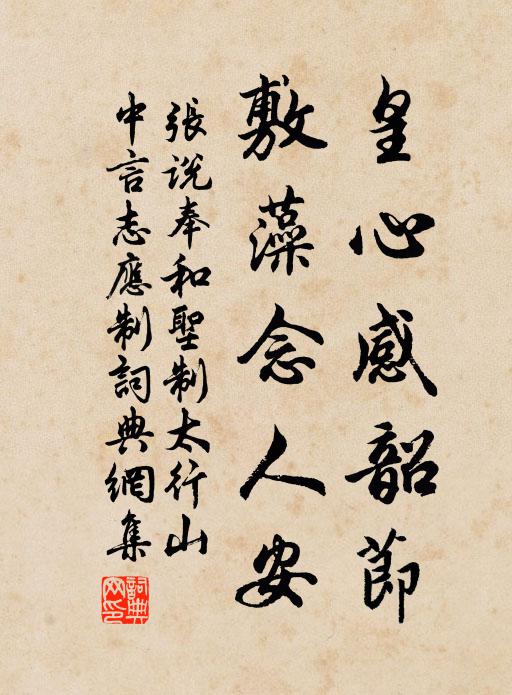 皇心感韶節
敷藻念人安
張説奉和聖制太行山
中言志應制詞典網集
詞典网印